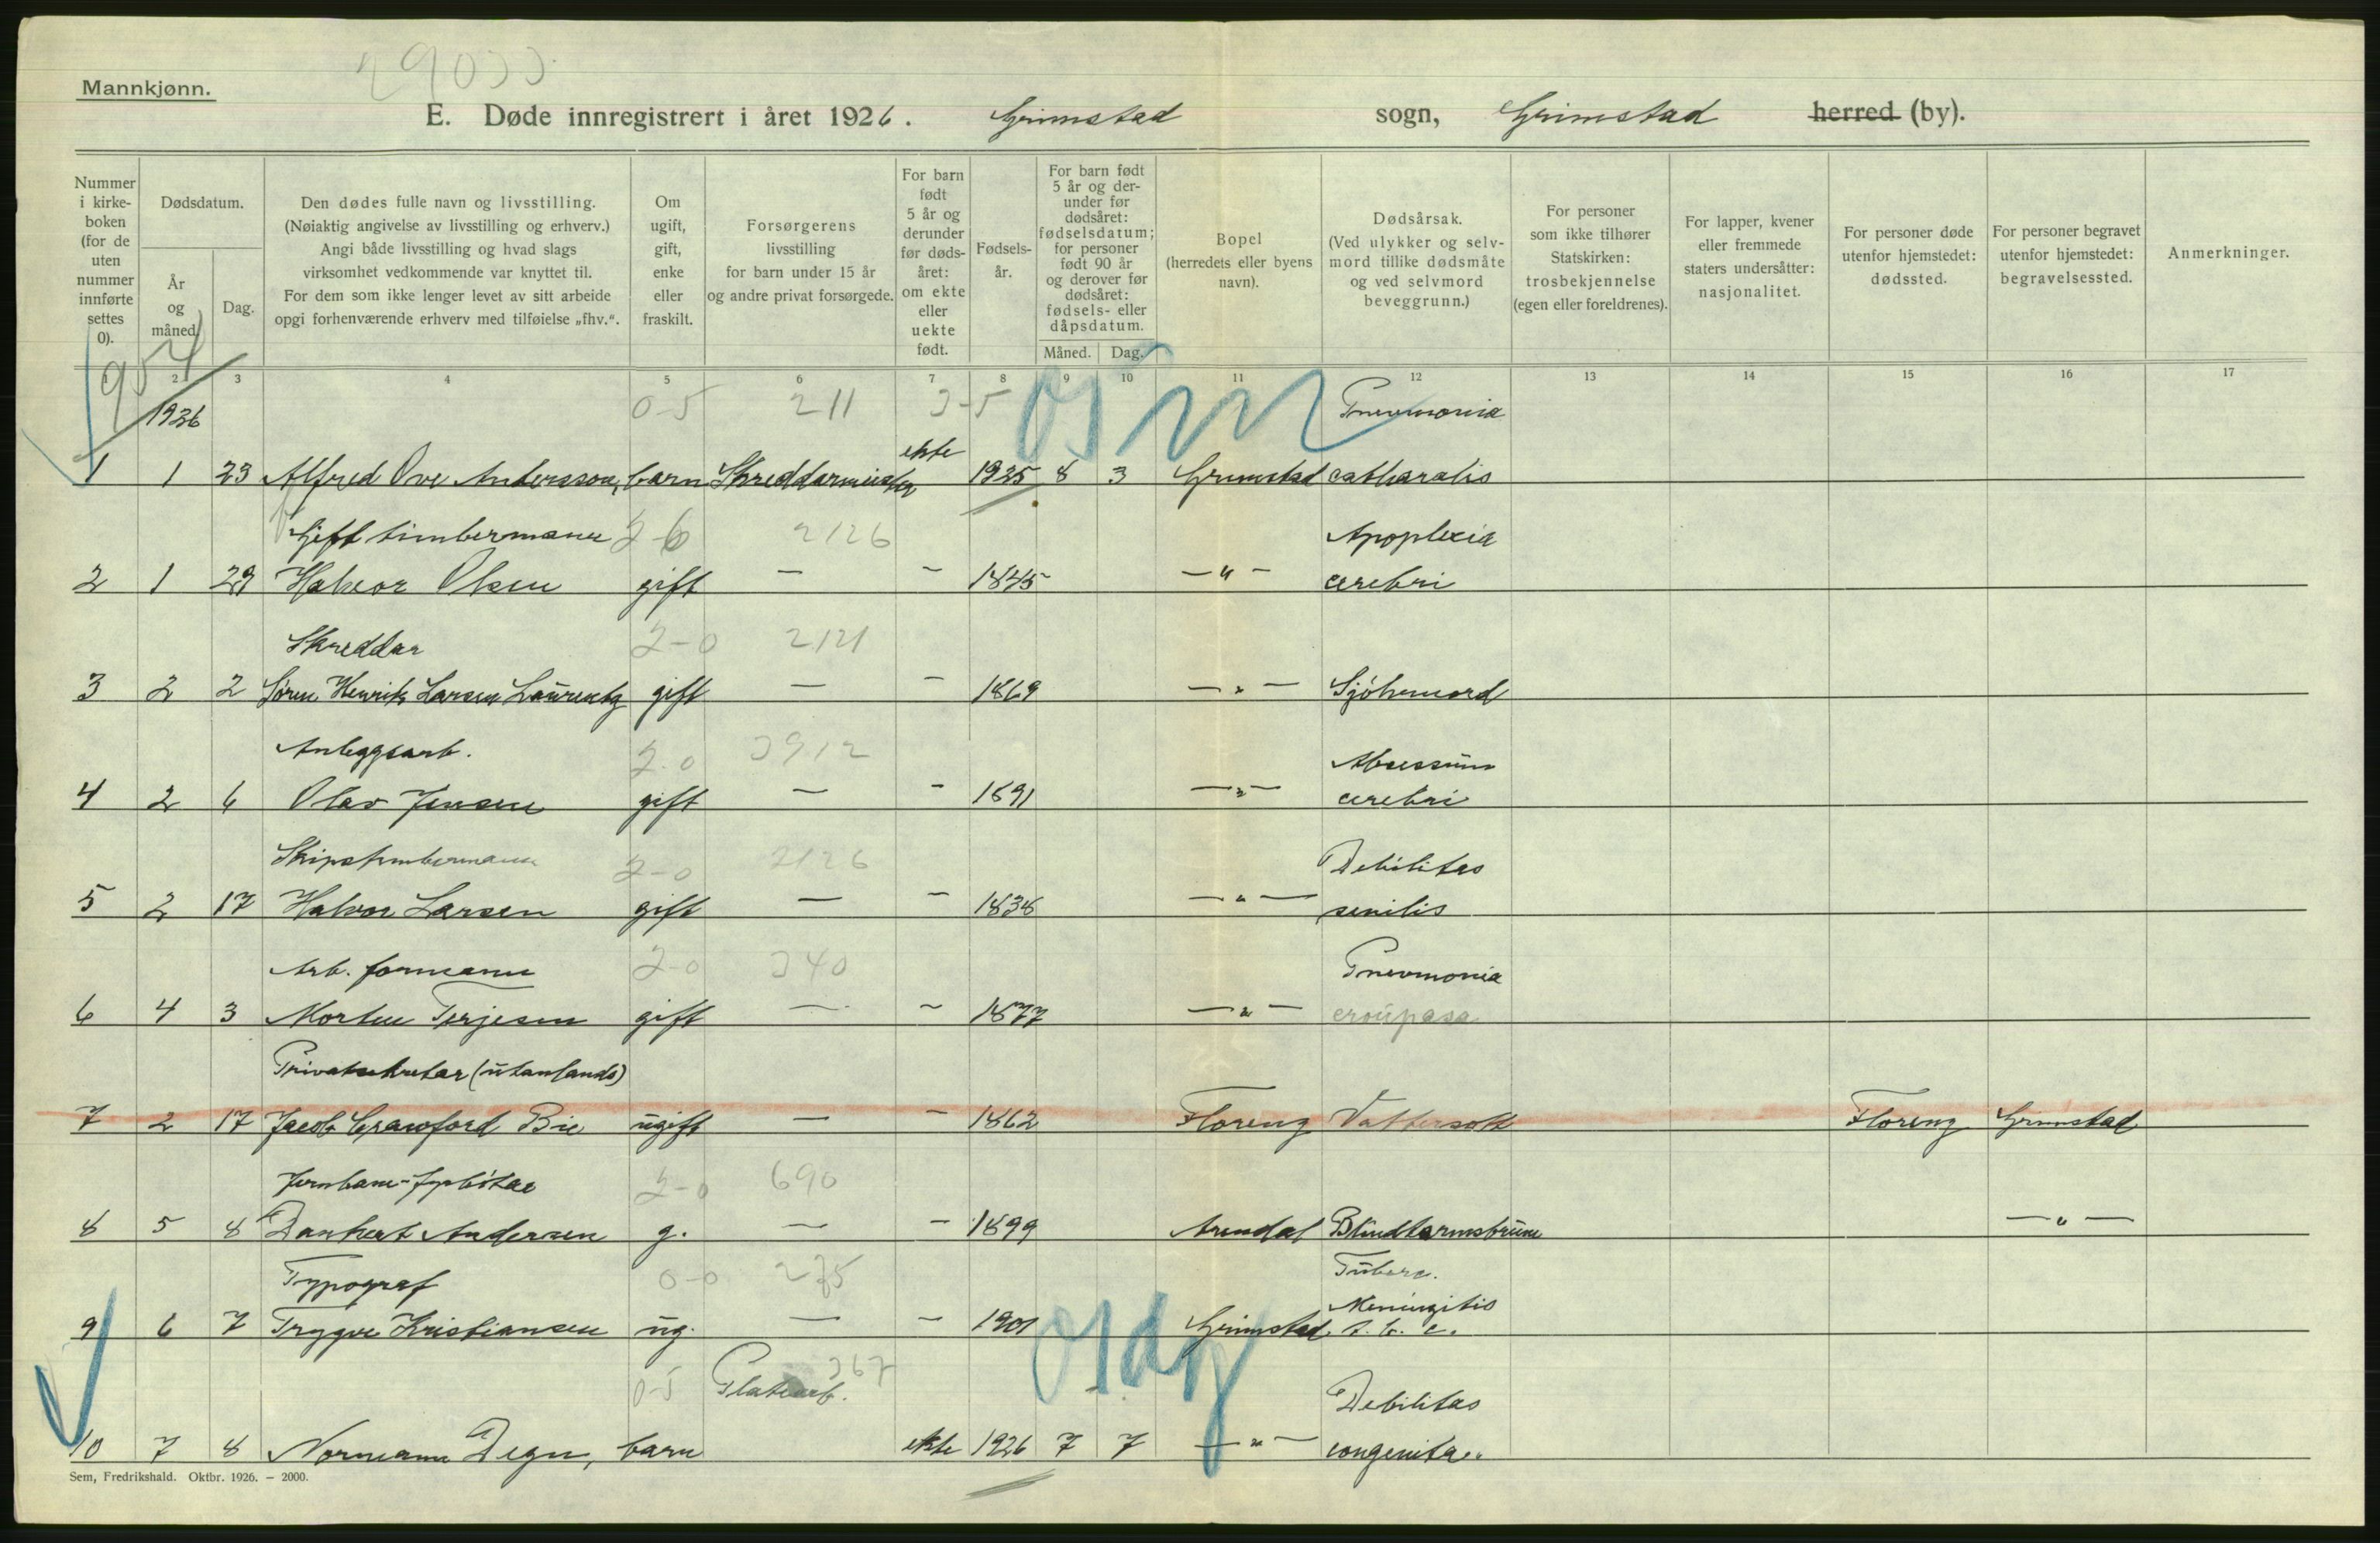 29033
Mannkjønn.
E. Døde innregistrert i året 1926. Grimstad sogn, Grimstad herred (by).
Nummer i kirke- boken (for de uten nummer innførte settes 0).
Dødsdatum.
År og måned.
Dag.
Den dødes fulle navn og livsstilling.
(Nøiaktig angivelse av livsstilling og erhverv.)
Angi både livsstilling og hvad slags
virksomhet vedkommende var knyttet til.
For dem som ikke lenger levet av sitt arbeide
opgi forhenværende erhverv med tilføielse „fhv.".
Om ugift, gift, enke eller fraskilt.
Forsørgerens
livsstilling
for barn under 15 år
og andre privat forsørgede.
For barn født 5 år og derunder før døds- året: om ekte eller uekte født.
Fødsels- år.
For barn født 5 år og der- under før dødsåret: fødselsdatum; for personer født 90 år og derover før dødsåret: fødsels- eller dåpsdatum.
Måned. Dag.
Bopel
(herredets eller byens
navn).
Dødsårsak.
(Ved ulykker og selv-
mord tillike dødsmåte
og ved selvmord
beveggrunn.)
For personer
som ikke tilhører
Statskirken:
trosbekjennelse
(egen eller foreldrenes).
For lapper, kvener
eller fremmede
staters undersåtter:
nasjonalitet.
For personer døde
utenfor hjemstedet:
dødssted.
For personer begravet
utenfor hjemstedet:
begravelsessted.
Anmerkninger.
1 2 3 4 5 6 7 8 9 10 11 12 13 14 15 16 17
1926 0-5 211 3-5 Pnevmonia
1 1 23 Alfred Ove Andersson, barn Skreddarmeister ekte 1925 8 3 Grimstad catharalis
Gift timbermann 2-6 2126 Apoplexia
2 1 29 Halvor Olsen gift — - 1845 —"— cerebri
Skreddar 2-0 2121
3 2 2 Søren Henrik Larsen Laurentz gift — - 1869 —"— Sjølvmord
Anleggsarb. 2-0 3912 Absessus
4 2 6 Olav Jensen gift — - 1891 —"— cerebri
Skipstimbermann 2-0 2126 Debilitas
5 2 17 Halvor Larsen gift — - 1838 —"— senilis
Arb. formann 2-0 340 Pnevmonia
6 4 3 Morten Terjesen gift — - 1877 —"— croupasa
Privatsekretar (utanlands)
7 2 17 Jacob Crawford Bie ugift — - 1862 Florenz Vattersott Florenz Grimstad
2-0 690
8 5 8 Dankert Andersen g. — - 1899 Arendal —"—
Typograf 0-0 275 Tuberc.
Meningitis
9 6 7 Trygve Kristiansen ug. — - 1901 Grimstad t. b. c.
0-5 Platearb. 367 Debilitas
10 7 8 Normann Degn, barn ekte 1926 7 7 —"— congenita
Sem, Fredrikshald. Oktbr. 1926. — 2000.